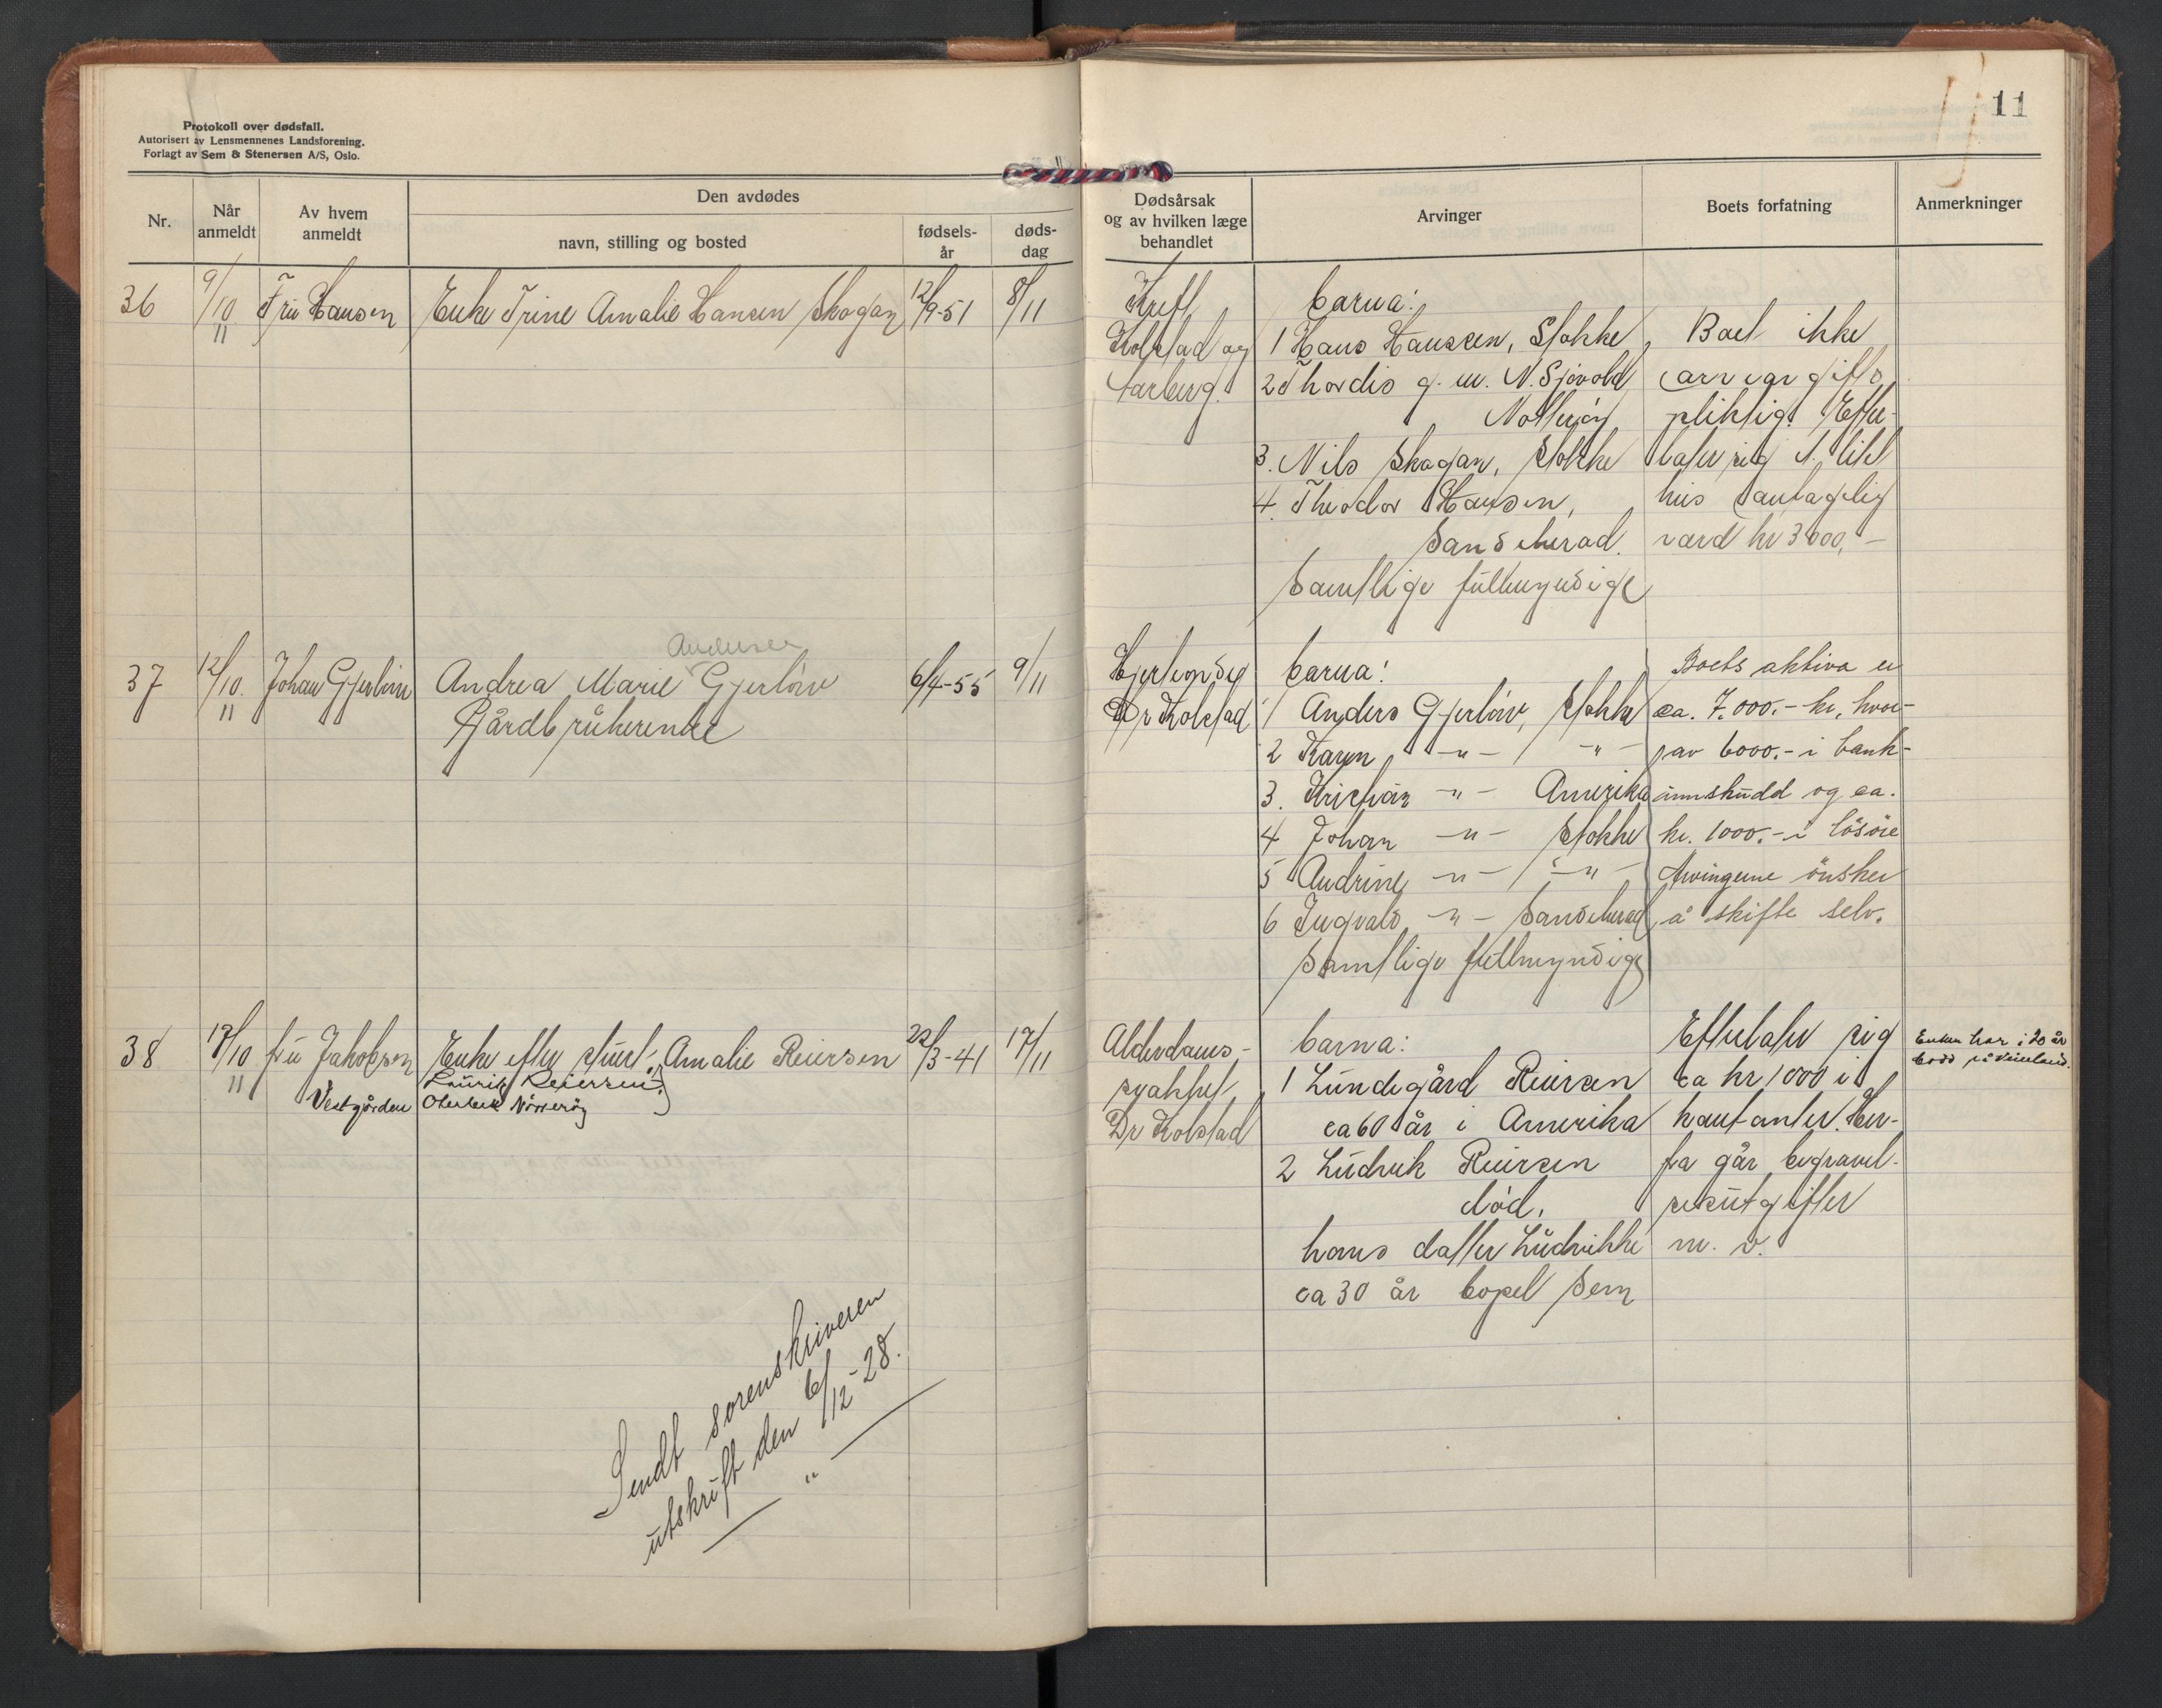 11
Protokoll over dødsfall.
Autorisert av Lensmennenes Landsforening.
Forlagt av Sem & Stenersen A/S, Oslo.
Nr.
Når anmeldt
Av hvem anmeldt
Den avdødes
navn, stilling og bosted
fødsels-år
døds-dag
Dødsårsak og av hvilken læge behandlet
Arvinger
Boets forfatning
Anmerkninger
36
9/10 11
Fru Hansen
Enke Trine Amalie Hansen Skogan
12/9-51
8/11
Kreft,
Kolstad og
barna:
1 Hans Hansen, Stokke
2 Thordis g. m. N. Sjøvold
Nøtterøy
3. Nils Skogan, Stokke
4. Theodor Hansen,
Sandeherad.
Samtlige fullmyndige
Boet ikke
arveavgifts
pliktig. Efter-
later sig 1 lite
hus antagelig
værd kr 3000,-
37
12/10. 11
Johan Gjerløw
Andersen
Andrea Marie Gjerløw
Gårdbrukerenke
6/4-55
9/11
Hjertonde
Dr Kolstad
barna:
1 Anders Gjerløw, Stokke
2 Karen -"- -"-
3. Kristian -"- Amerika
4 Johan -"- Stokke
5 Andrine -"- -"-
6 Ingvald -"- Sandeherad
Samtlige fullmyndige
Boets aktiva er
ca. 7.000.- kr, hvor-
av 6000.- i bank-
innskudd og ca.
kr. 1000.- i løsøre
Arvingerne ønsker
å skifte selv.
38
17/10 11
fru Jakobsen
Vestgården
Enke efter stuert Amalie Reiersen
Laurits Reiersen
Oterbek Nøtterøy
22/3-41
17/11
Alderdoms-
svakhet,
Dr Kolstad
barna:
1 Lundegård Reiersen
ca 60 år i Amerika
2 Ludvik Reiersen
død,
hans datter Ludvikke
ca 30 år bopel Sem
Efterlater sig
ca kr 1000 i
kontanter. Her-
fra går begravel-
sesutgifter
m. v.
Enken har i 20 år
bodd på
Sendt sorenskriveren
utskrift den 6/12-28.
— " —